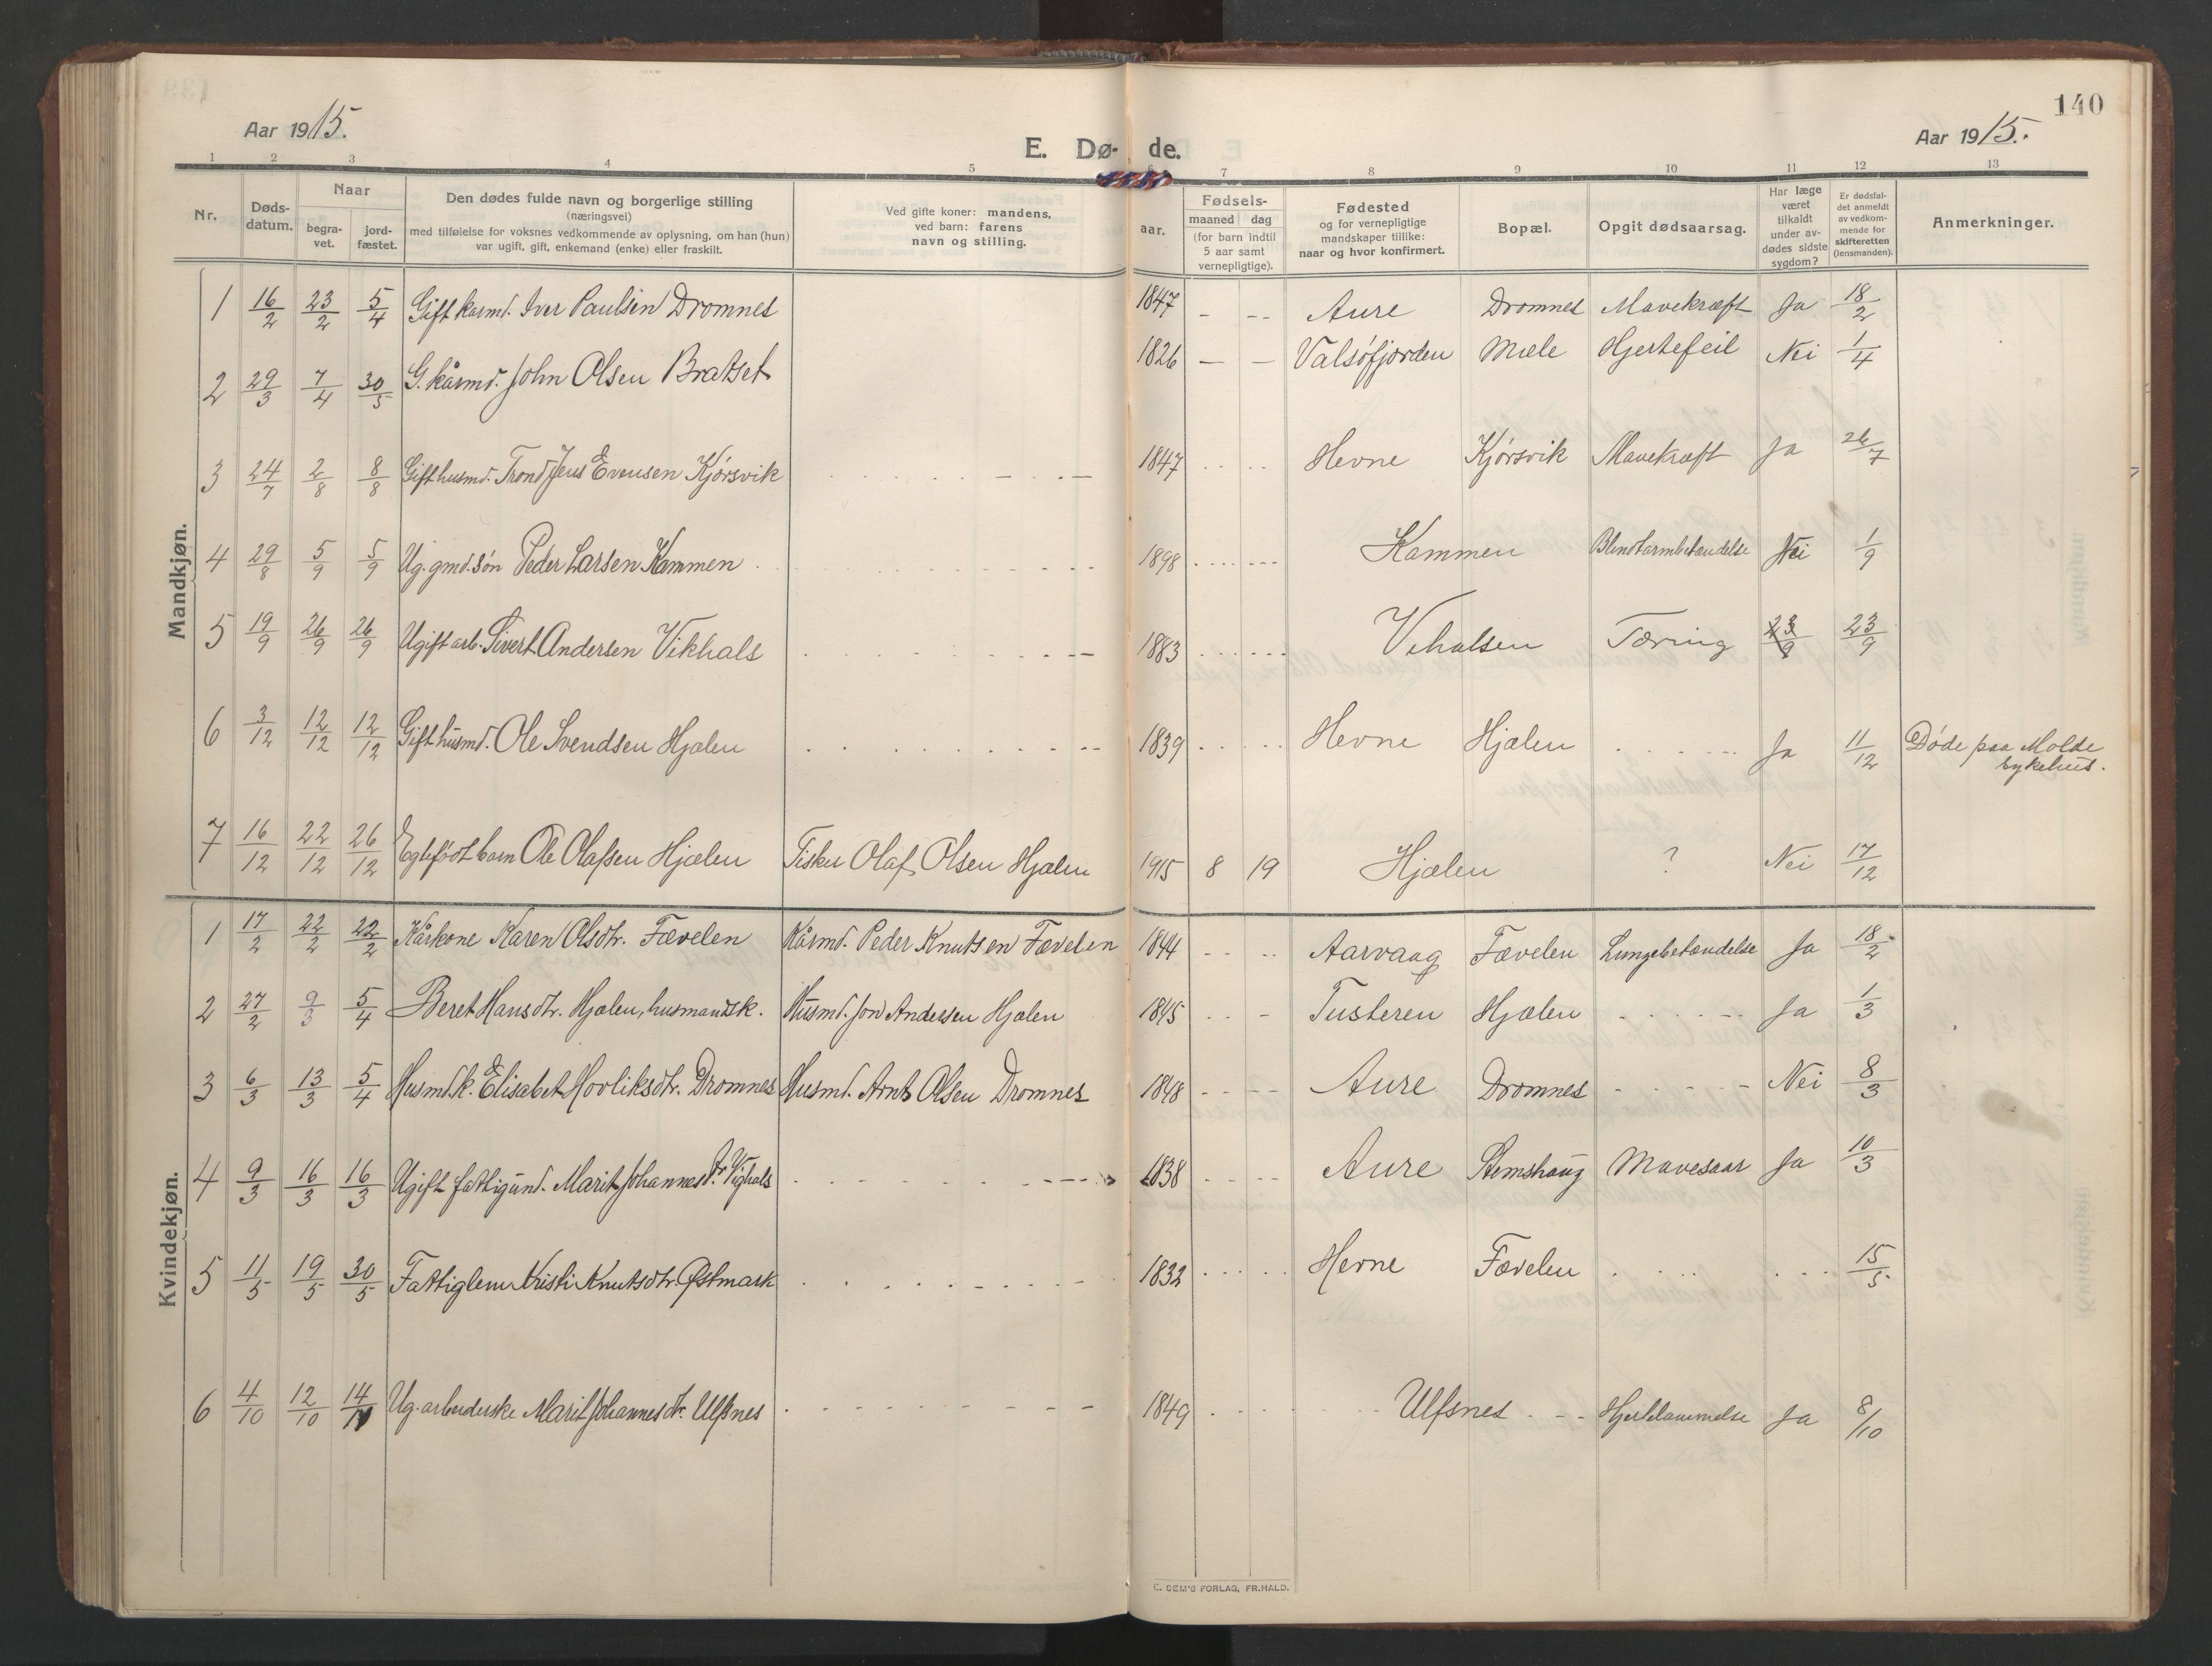 140
Aar 1915.
E. Dø- de.
Aar 1915.
1 2 3 4 5 7 8 9 10 11 12 13
Nr.
Døds-
datum.
Naar
begra-
vet.
jord-
fæstet.
Den dødes fulde navn og borgerlige stilling
(næringsvei)
med tilføielse for voksnes vedkommende av oplysning, om han (hun)
var ugift, gift, enkemand (enke) eller fraskilt.
Ved gifte koner: mandens,
ved barn: farens
navn og stilling.
Fødsels-
aar.
maaned dag
(for barn indtil
5 aar samt
vernepligtige).
Fødested
og for vernepligtige
mandskaper tillike:
naar og hvor konfirmert.
Bopæl.
Opgit dødsaarsag.
Har læge
været
tilkaldt
under av-
dødes sidste
sygdom?
Er dødsfal-
det anmeldt
av vedkom-
mende for
skifteretten
(lensmanden).
Anmerkninger.
Mandkjøn.
1 16/2 23/2 5/4 Gift karmd. Iver Paulsen Dromnes 1847 - -- Aure Dromnes Mavekræft Ja 18/2
2 29/3 7/4 30/5 G. kårmd. John Olsen Bratset 1826 - - Valsøfjorden Mæle Hjertefeil Nei 1/4
3 24/7 2/8 8/8 Gift husmd. Trond Jens Evensen Kjørsvik 1847 Hevne Kjørsvik Mavekræft Ja 26/7
4 29/8 5/9 5/9 Ug. gmd. søn Peder Larsen Kammen 1898 Kammen Blindtarmbetændelse Nei 1/9
5 19/9 26/9 26/9 Ugift arb. Sivert Andersen Vikhals 1883 Vihalsen Tæring 23/9 23/9
6 3/12 12/12 12/12 Gift husmd. Ole Svendsen Hjælen 1839 Hevne Hjælen Ja 11/12 Døde paa Molde
sykehus.
7 16/12 22/12 26/12 Egtefødt barn Ole Olafsen Hjælen Fisker Olaf Olsen Hjælen 1915 8 19 Hjælen ? Nei 17/12
Kvindekjøn.
1 17/2 22/2 22/2 Kårkone Karen Olsdtr. Fævelen Kårmd. Peder Knutsen Fævelen 1844 Aarvaag Fævelen Lungebetændelse Ja 18/2
2 27/2 9/3 5/4 Beret Hansdtr. Hjælen, husmandsk. Husmd. Jon Andersen Hjælen 1845 Tusteren Hjælen Ja 1/3
3 6/3 13/3 5/4 Husmd.k. Elisabet Hovliksdtr. Dromnes Husmd. Arnt Olsen Dromnes 1848 Aure Dromnes Nei 8/3
4 9/3 16/3 16/3 Ugift fattigund. Marit Johannesdtr. Vighals 1838 Aure Stemshaug Mavesaar Ja 10/3
5 11/5 19/5 30/5 Fattiglem Kristi Knutsdtr. Østmark 1832 Hevne Fævelen 15/5
6 4/10 12/10 Ug. arbeiderske Marit Johannesdtr. Ulfsnes 1849 Ulfsnes Hjertelammelse Ja 8/10
E. SEM'S FORLAG, FR.HALD.